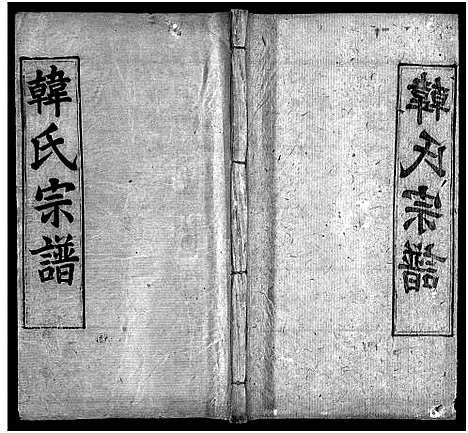 韓氏宗譜
韓氏宗譜